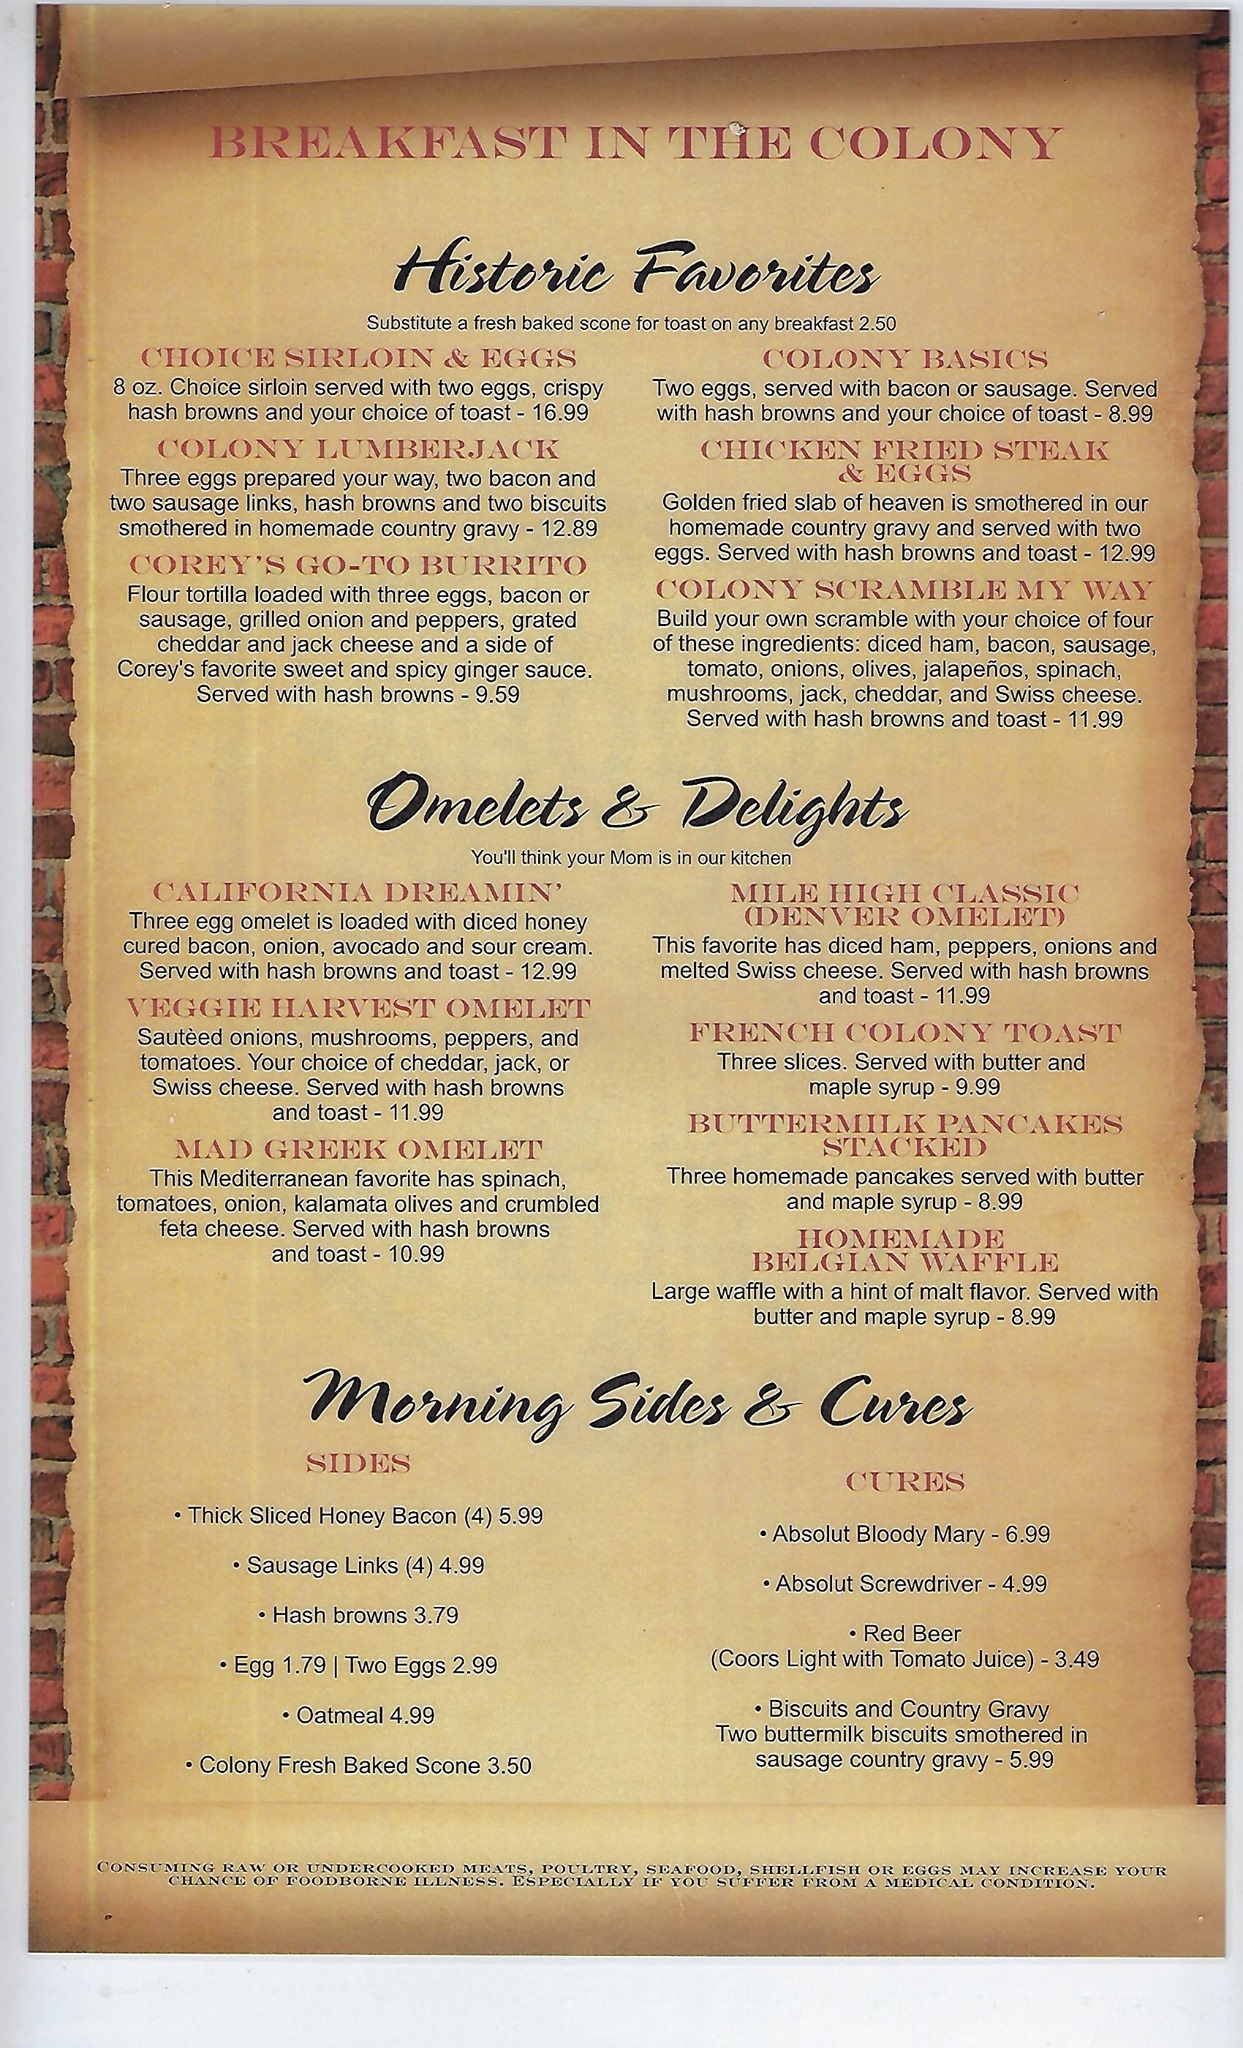 BREAKFAST IN THE COLONY
Historic Favorites
Substitute a fresh baked scone for toast on any breakfast 2.50
CHOICE SIRLOIN & EGGS
8 oz. Choice sirloin served with two eggs, crispy
hash browns and your choice of toast - 16.99
COLONY LUMBERJACK
Three eggs prepared your way, two bacon and
two sausage links, hash browns and two biscuits
smothered in homemade country gravy - 12.89
COREY'S GO-TO BURRITO
Flour tortilla loaded with three eggs, bacon or
sausage, grilled onion and peppers, grated
cheddar and jack cheese and a side of
Corey's favorite sweet and spicy ginger sauce.
Served with hash browns - 9.59
COLONY BASICS
Two eggs, served with bacon or sausage. Served
with hash browns and your choice of toast - 8.99
CHICKEN FRIED STEAK
& EGGS
Golden fried slab of heaven is smothered in our
homemade country gravy and served with two
eggs. Served with hash browns and toast - 12.99
COLONY SCRAMBLE MY WAY
Build your own scramble with your choice of four
of these ingredients: diced ham, bacon, sausage,
tomato, onions, olives, jalapeños, spinach,
mushrooms, jack, cheddar, and Swiss cheese.
Served with hash browns and toast - 11.99
Omelets & Delights
You'll think your Mom is in our kitchen
CALIFORNIA DREAMIN'
Three egg omelet is loaded with diced honey
cured bacon, onion, avocado and sour cream.
Served with hash browns and toast - 12.99
VEGGIE HARVEST OMELET
Sautèed onions, mushrooms, peppers, and
tomatoes. Your choice of cheddar, jack, or
Swiss cheese. Served with hash browns
and toast - 11.99
MAD GREEK OMELET
This Mediterranean favorite has spinach,
tomatoes, onion, kalamata olives and crumbled
feta cheese. Served with hash browns
and toast - 10.99
MILE HIGH CLASSIC
(DENVER OMELET)
This favorite has diced ham, peppers, onions and
melted Swiss cheese. Served with hash browns
and toast - 11.99
FRENCH COLONY TOAST
Three slices. Served with butter and
maple syrup - 9.99
BUTTERMILK PANCAKES
STACKED
Three homemade pancakes served with butter
and maple syrup - 8.99
HOMEMADE
BELGIAN WAFFLE
Large waffle with a hint of malt flavor. Served with
butter and maple syrup - 8.99
Morning Sides & Cures
SIDES
• Thick Sliced Honey Bacon (4) 5.99
• Sausage Links (4) 4.99
• Hash browns 3.79
• Egg 1.79 | Two Eggs 2.99
• Oatmeal 4.99
• Colony Fresh Baked Scone 3.50
CURES
• Absolut Bloody Mary - 6.99
• Absolut Screwdriver - 4.99
• Red Beer
(Coors Light with Tomato Juice) - 3.49
• Biscuits and Country Gravy
Two buttermilk biscuits smothered in
sausage country gravy - 5.99
CONSUMING RAW OR UNDERCOOKED MEATS, POULTRY, SEAFOOD, SHELLFISH OR EGGS MAY INCREASE YOUR
CHANCE OF FOODBORNE ILLNESS. ESPECIALLY IF YOU SUFFER FROM A MEDICAL CONDITION.